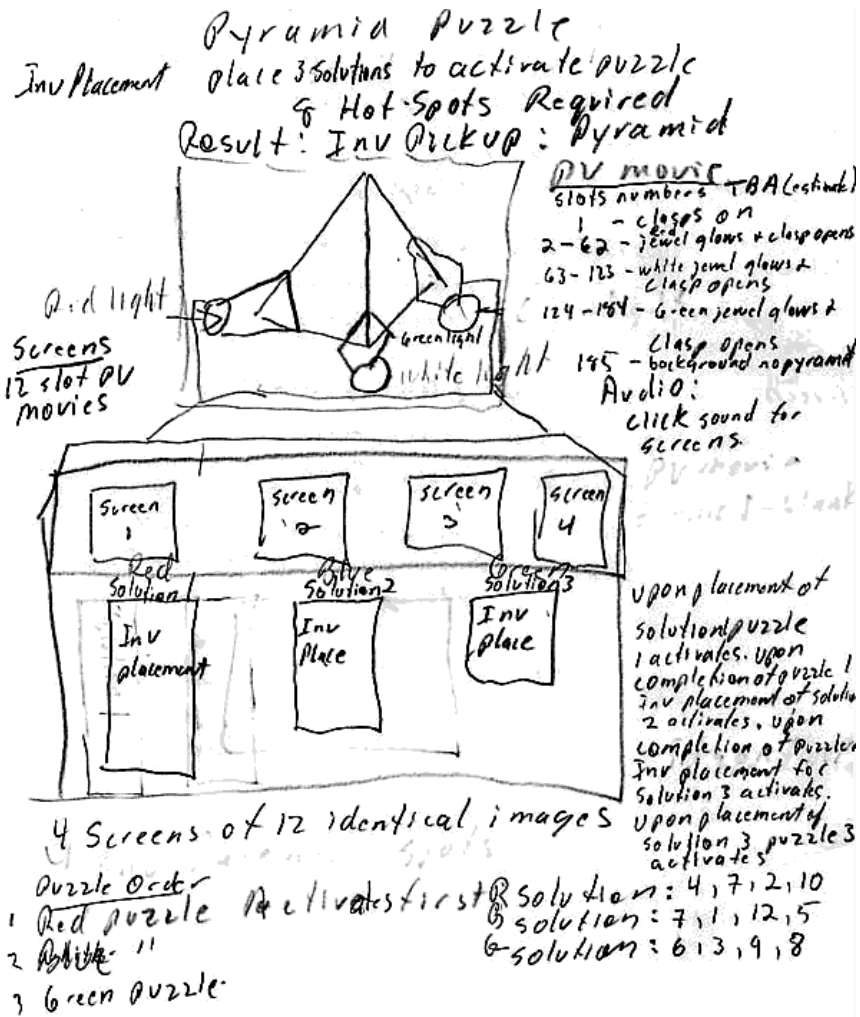 Pyramid Puzzle
Inv Placement
place 3 solutions to activate puzzle
8 Hot-Spots Required
Result: Inv Pickup: Pyramid
PV movie
slots numbers TBA (estimate)
1 - clasps on
2-62 - red jewel glows & clasp opens
63-123 - white jewel glows &
clasp opens
124-184 - Green jewel glows &
clasp opens
185 - background no pyramid
Audio:
click sound for
screens
Red light
Green light
white light
Screens
12 slot PV
movies
Screen
1
Screen
2
Screen
3
Screen
4
Red
Solution 1
Blue
Solution 2
Green
Solution 3
Inv
placement
Inv
Place
Inv
place
upon placement of
solution 1 puzzle
1 activates. upon
completion of puzzle 1
Inv placement of solution
2 activates. upon
completion of puzzle
Inv placement for
solution 3 activates.
upon placement of
solution 3 puzzle 3
activates
4 Screens of 12 identical images
Puzzle Order
1 Red puzzle Activates first
2 "
3 Green puzzle
R solution: 4, 7, 2, 10
B solution: 7, 1, 12, 5
G solution: 6, 3, 9, 8